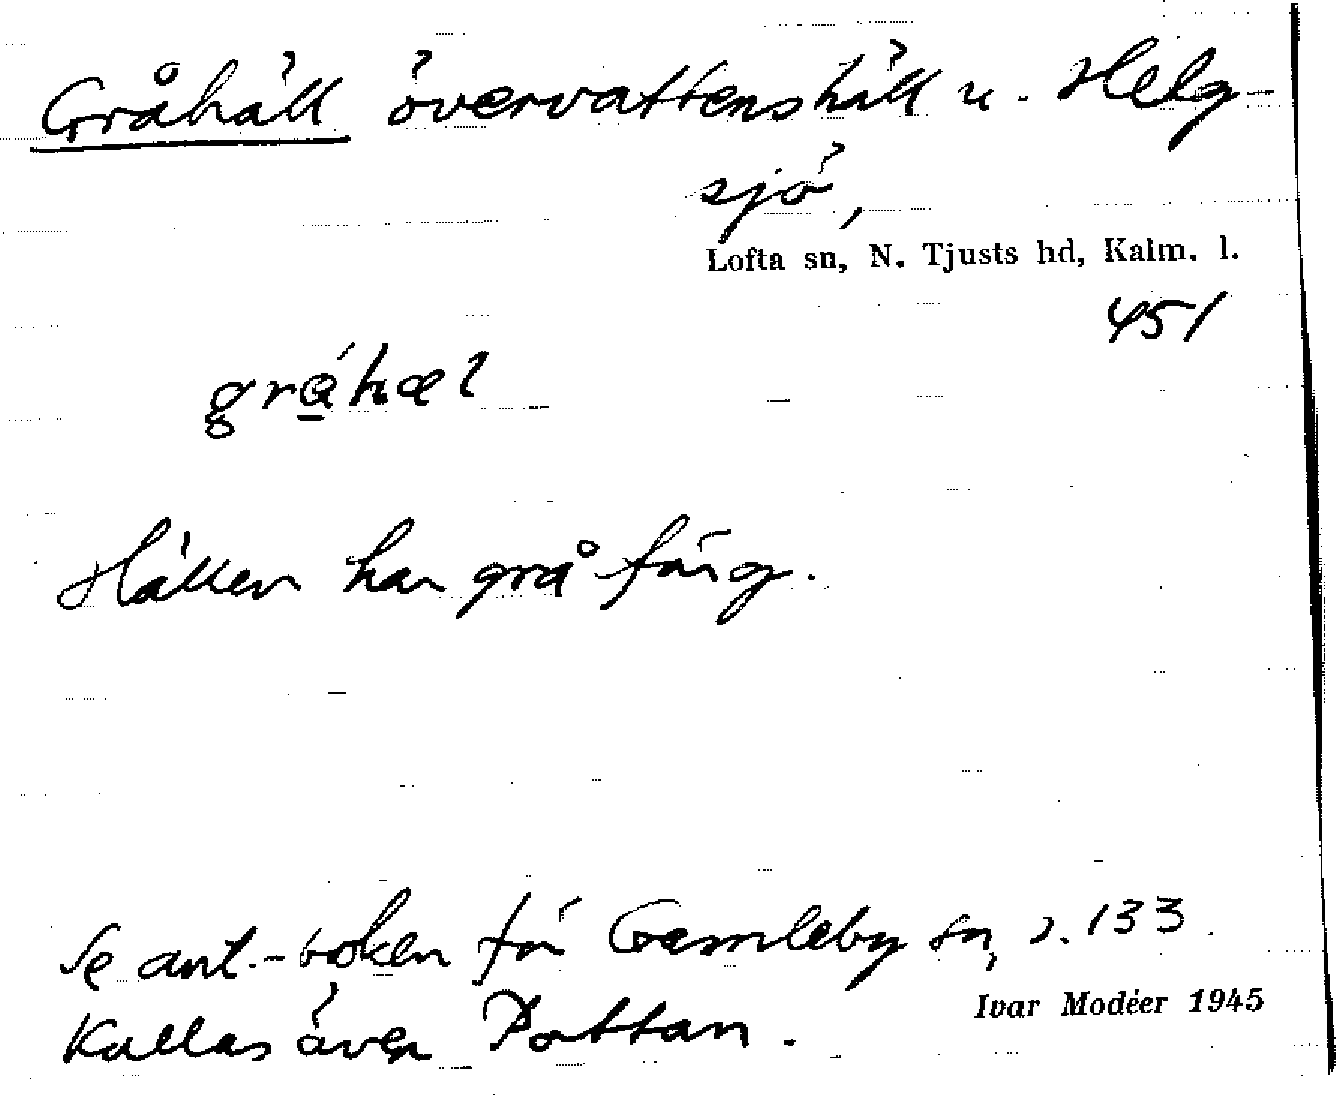 Gråhäll övervattenshäll u. Helg-
sjö,
Lofta sn, N. Tjusts hd, Kalm. l.
451
Hällen har grå färg.
Se ant.-boken för Gamleby sn, s. 133.
Ivar Modéer 1945
Kallas även Pottan.